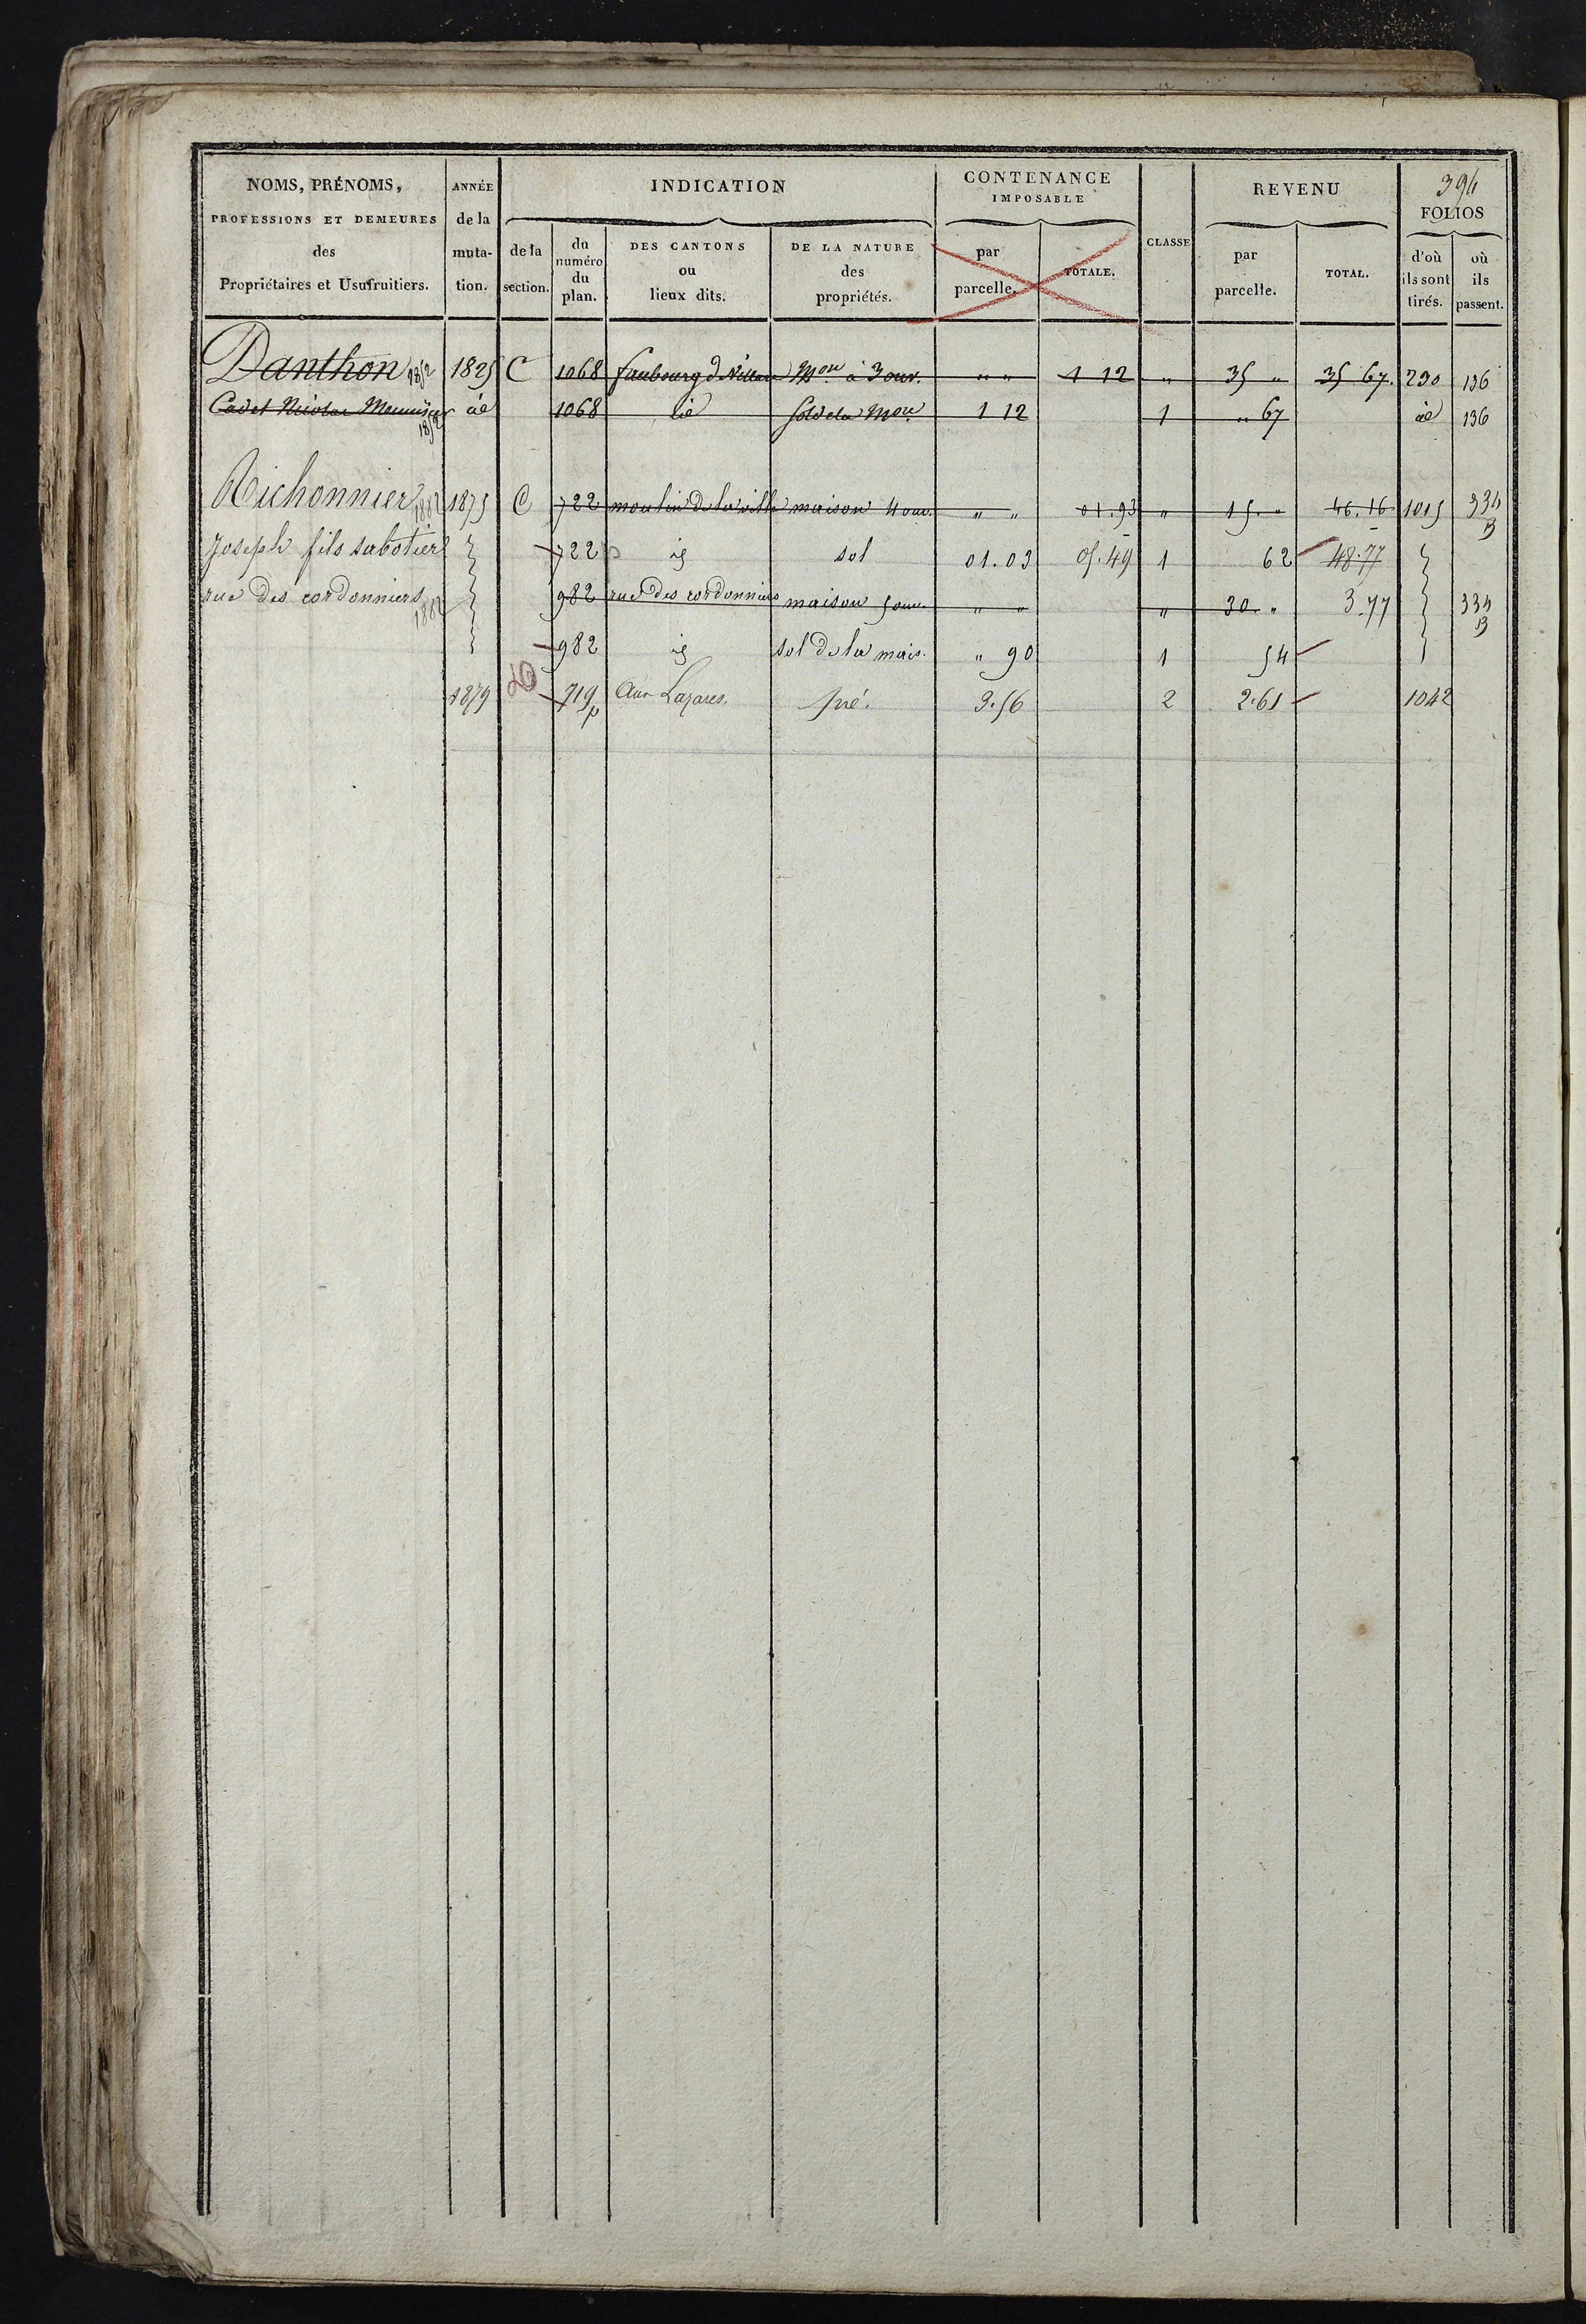 394
NOMS, PRÉNOMS, PROFESSIONS ET DEMEURES des Propriétaires et Usufruitiers.
ANNÉE de la muta- tion.
INDICATION
de la section.
du numéro du plan.
DES CANTONS ou lieux dits.
DE LA NATURE des propriétés.
CONTENANCE IMPOSABLE
par parcelle.
TOTALE.
CLASSE
REVENU
par parcelle.
TOTAL.
FOLIOS
d'où ils sont tirés.
où ils passent.
Danthon 1852 1825 C 1068 faubourg de Villars Mon à 3 ouv. " " 1 12 " 35 " 35 67. 230 136
Cadet Nicolas Menuisier 1852 id 1068 id Sol de la Mon 1 12 1 " 67 id 136
Richonnier 1882 1875 C 722 moulin de la ville maison 4 ouv. " " 01.93 " 15. " 46.16 1015 334 B
Joseph fils sabotier 722 id sol 01.03 05.49 1 62 48.77
rue des cordonniers 1882 982 rue des cordonniers maison 5 ouv. " " " 30 " 3.77 334 B
982 id sol de la mais. " 90 1 54
1879 D 719p Aux Lazares. pré. 3.56 2 2.61 1042